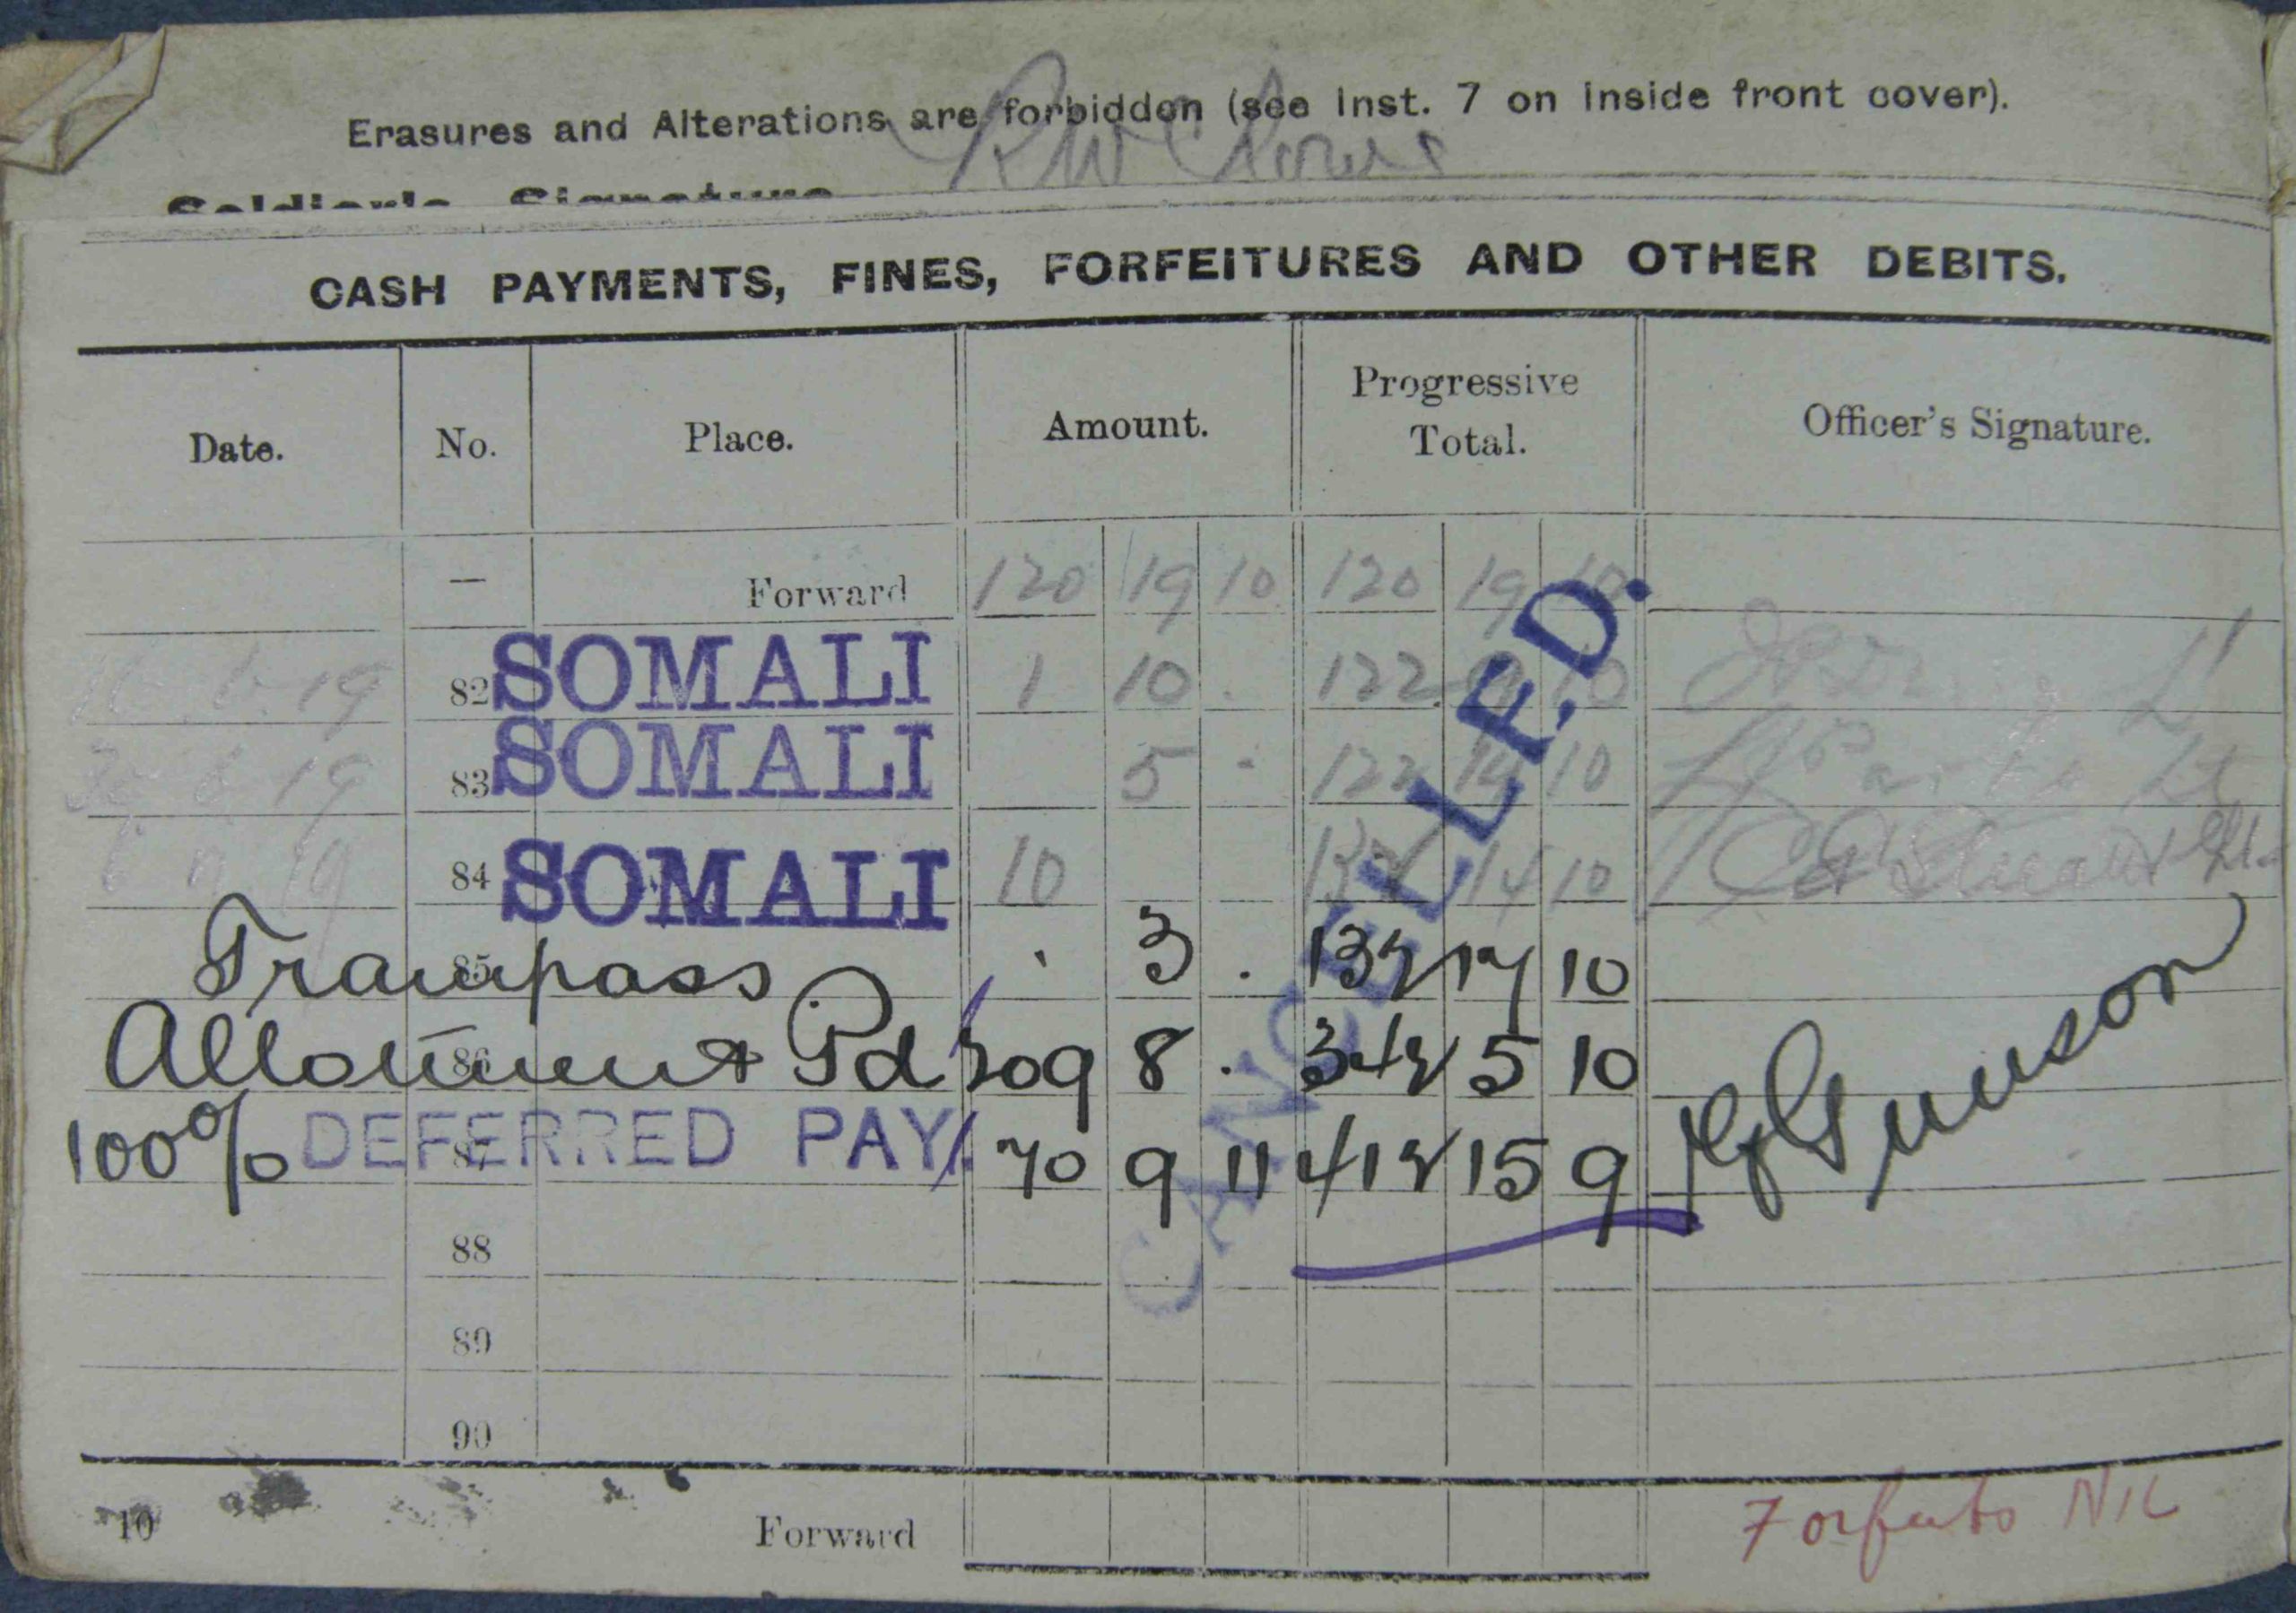 Erasures and Alterations are forbidden (see Inst. 7 on inside front cover).
Soldier's Signature
CASH PAYMENTS, FINES, FORFEITURES AND OTHER DEBITS.
Date. No. Place. Amount. Progressive Total. Officer's Signature.
— Forward 120 19 10 120 19 10
16.6.19 82 SOMALI 1 10 . 122 9 10
6 19 83 SOMALI 5 - 122 14 10
19 84 SOMALI 10 132 14 10
Trampass 85 . 3 . 132 17 10
Allotment Pd 86 209 8 . 342 5 10
100% DEFERRED PAY 87 70 9 11 412 15 9
CANCELLED.
88
89
90
10 Forward
Forfeits NIL